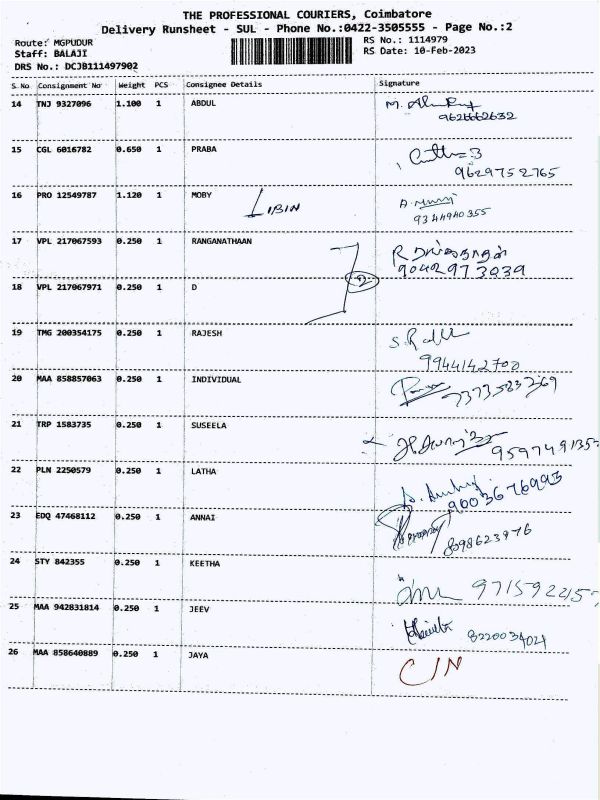 THE PROFESSIONAL COURIERS, Coimbatore
Delivery Runsheet - SUL - Phone No.:0422-3505555 - Page No.:2
Route: MGPUDUR
Staff: BALAJI
DRS No.: DCJB111497902
RS No.: 1114979
RS Date: 10-Feb-2023
S.No Consignment No Weight PCS Consignee Details Signature
14 TNJ 9327096 1.100 1 ABDUL
15 CGL 6016782 0.650 1 PRABA
9629752765
16 PRO 12549787 1.120 1 MOBY LIBIN
9344940355
17 VPL 217067593 0.250 1 RANGANATHAAN
9042973039
18 VPL 217067971 0.250 1 D
2
19 TMG 200354175 0.250 1 RAJESH
9944142700
20 MAA 858857063 0.250 1 INDIVIDUAL
7373583269
21 TRP 1583735 0.250 1 SUSEELA
22 PLN 2250579 0.250 1 LATHA
9003676993
23 EDQ 47468112 0.250 1 ANNAI
24 STY 842355 0.250 1 KEETHA
25 MAA 942831814 0.250 1 JEEV
8220034021
26 MAA 858640889 0.250 1 JAYA
C/N